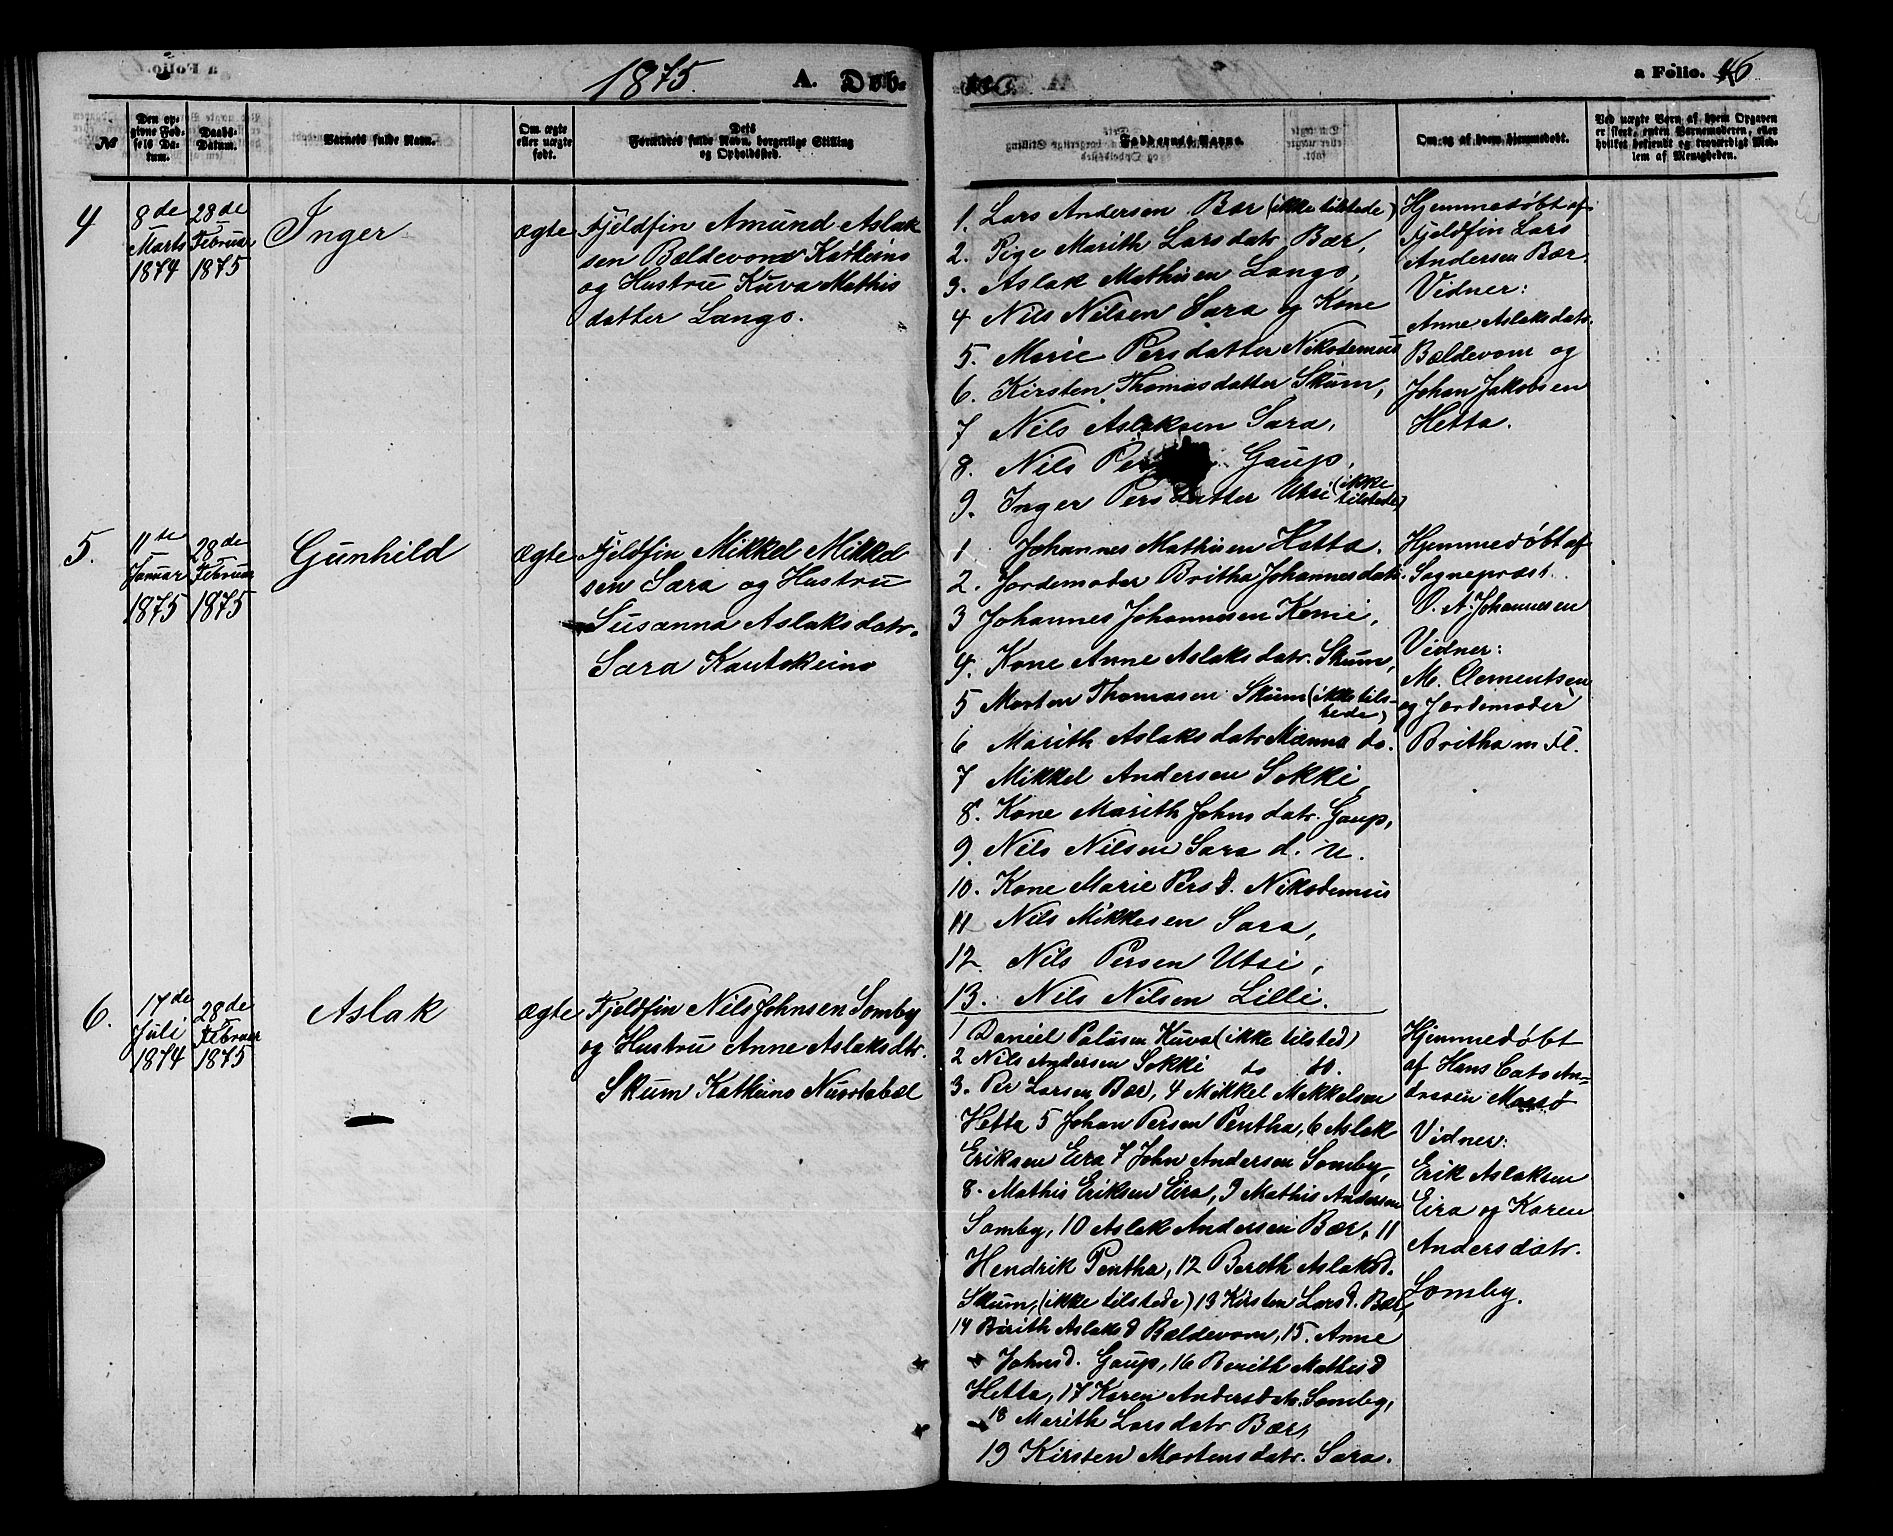 1875. A. Døb. a Folio. 46
No
Den opgivne Fødsels Datum.
Daabs-Datum.
Barnets fulde Navn.
Om ægte eller uægte født.
Dets Forældres fulde Navn, borgerlige Stilling og Opholdssted.
Faddernes Navne.
Om og af hvem hjemmedøbt.
Ved uægte Børn af hvem Opgaven er skeet, enten Barnemoderen, eller hvilket bekjendt og troværdigt Medlem af Menigheden.
4
8de
Marts
1874
28de
Februar
1875
Inger
ægte
Fjeldfin Amund Aslak
sen Bældevom Kautkeino
og Hustru Kuva Mathis
datter Lango.
1. Lars Andersen Bær (ikke tilstede)
2. Pige Marith Larsdatr Bær,
3. Aslak Mathisen Lango,
4 Nils Nilsen Sara og Kone
5. Marie Persdatter Nikodemus
6. Kirsten Thomasdatter Skum,
7 Nils Aslaksen Sara,
8. Nils Gaup,
9. Inger Persdatter Utsi (ikke
tilstede)
Hjemmedøbt af
Fjeldfin Lars
Andersen Bær.
Vidner:
Anne Aslaksdatr.
Bældevom og
Johan Jakobsen
Hetta.
5.
11te
Januar
1875
28de
Februar
1875
Gunhild
Ægte
Fjeldfin Mikkel Mikkel
sen Sara og Hustru
Susanna Aslaksdatr.
Sara Kautokeino
1 Johannes Mathisen Hetta.
2. Jordemoder Britha Johannesdatr.
3 Johannes Johannesen Kemi,
4. Kone Anne Aslaksdatr. Skum,
5 Morten Thomasen Skum (ikke tils-
tede)
6 Marith Aslaksdatr Manna do.
7 Mikkel Andersen Sokki,
8. Kone Marith Johnsdatr. Gaup,
9. Nils Nilsen Sara d. u.
10. Kone Marie Persd. Nikodemus
11 Nils Mikkesen Sara,
12. Nils Persen Utsi,
13. Nils Nilsen Lilli.
Hjemmedøbt af
Sognepræst
A. Johannesen
Vidner:
M. Clementsen
og Jordemoder
Britha m Fl.
6.
17de
Juli
1874
28de
Februar
1875
Aslak
ægte
Fjeldfin Nils Johnsen Somby
og Hustru Anne Aslaksdtr.
Skum Kautkeino
1 Daniel Palusen Kuva (ikke tilsted)
2 Nils Andersen Sokki do do.
3. Per Larsen Bær, 4 Mikkel Mikkelsen
Hetta 5 Johan Persen Pentha, 6 Aslak
Eriksen Eira 7 John Andersen Somby,
8. Mathis Eriksen Eira, 9 Mathis Andersen
Somby, 10 Aslak Andersen Bær, 11
Hendrik Pentha, 12 Bereth Aslaksd.
Skum, (ikke tilstede) 13 Kirsten Larsd. Bær,
14 Birith Aslaksd Bældevom, 15. Anne
Johnsd. Gaup, 16 Berith Mathisd
Hetta, 17 Karen Andersdatr. Somby,
18 Marith Larsdatr Bær,
19 Kirsten Mortensdatr. Sara.
Hjemmedøbt
af Hans Cato An=
dresen
Vidner:
Erik Aslaksen
Eira og Karen
Andersdatr.
Somby.